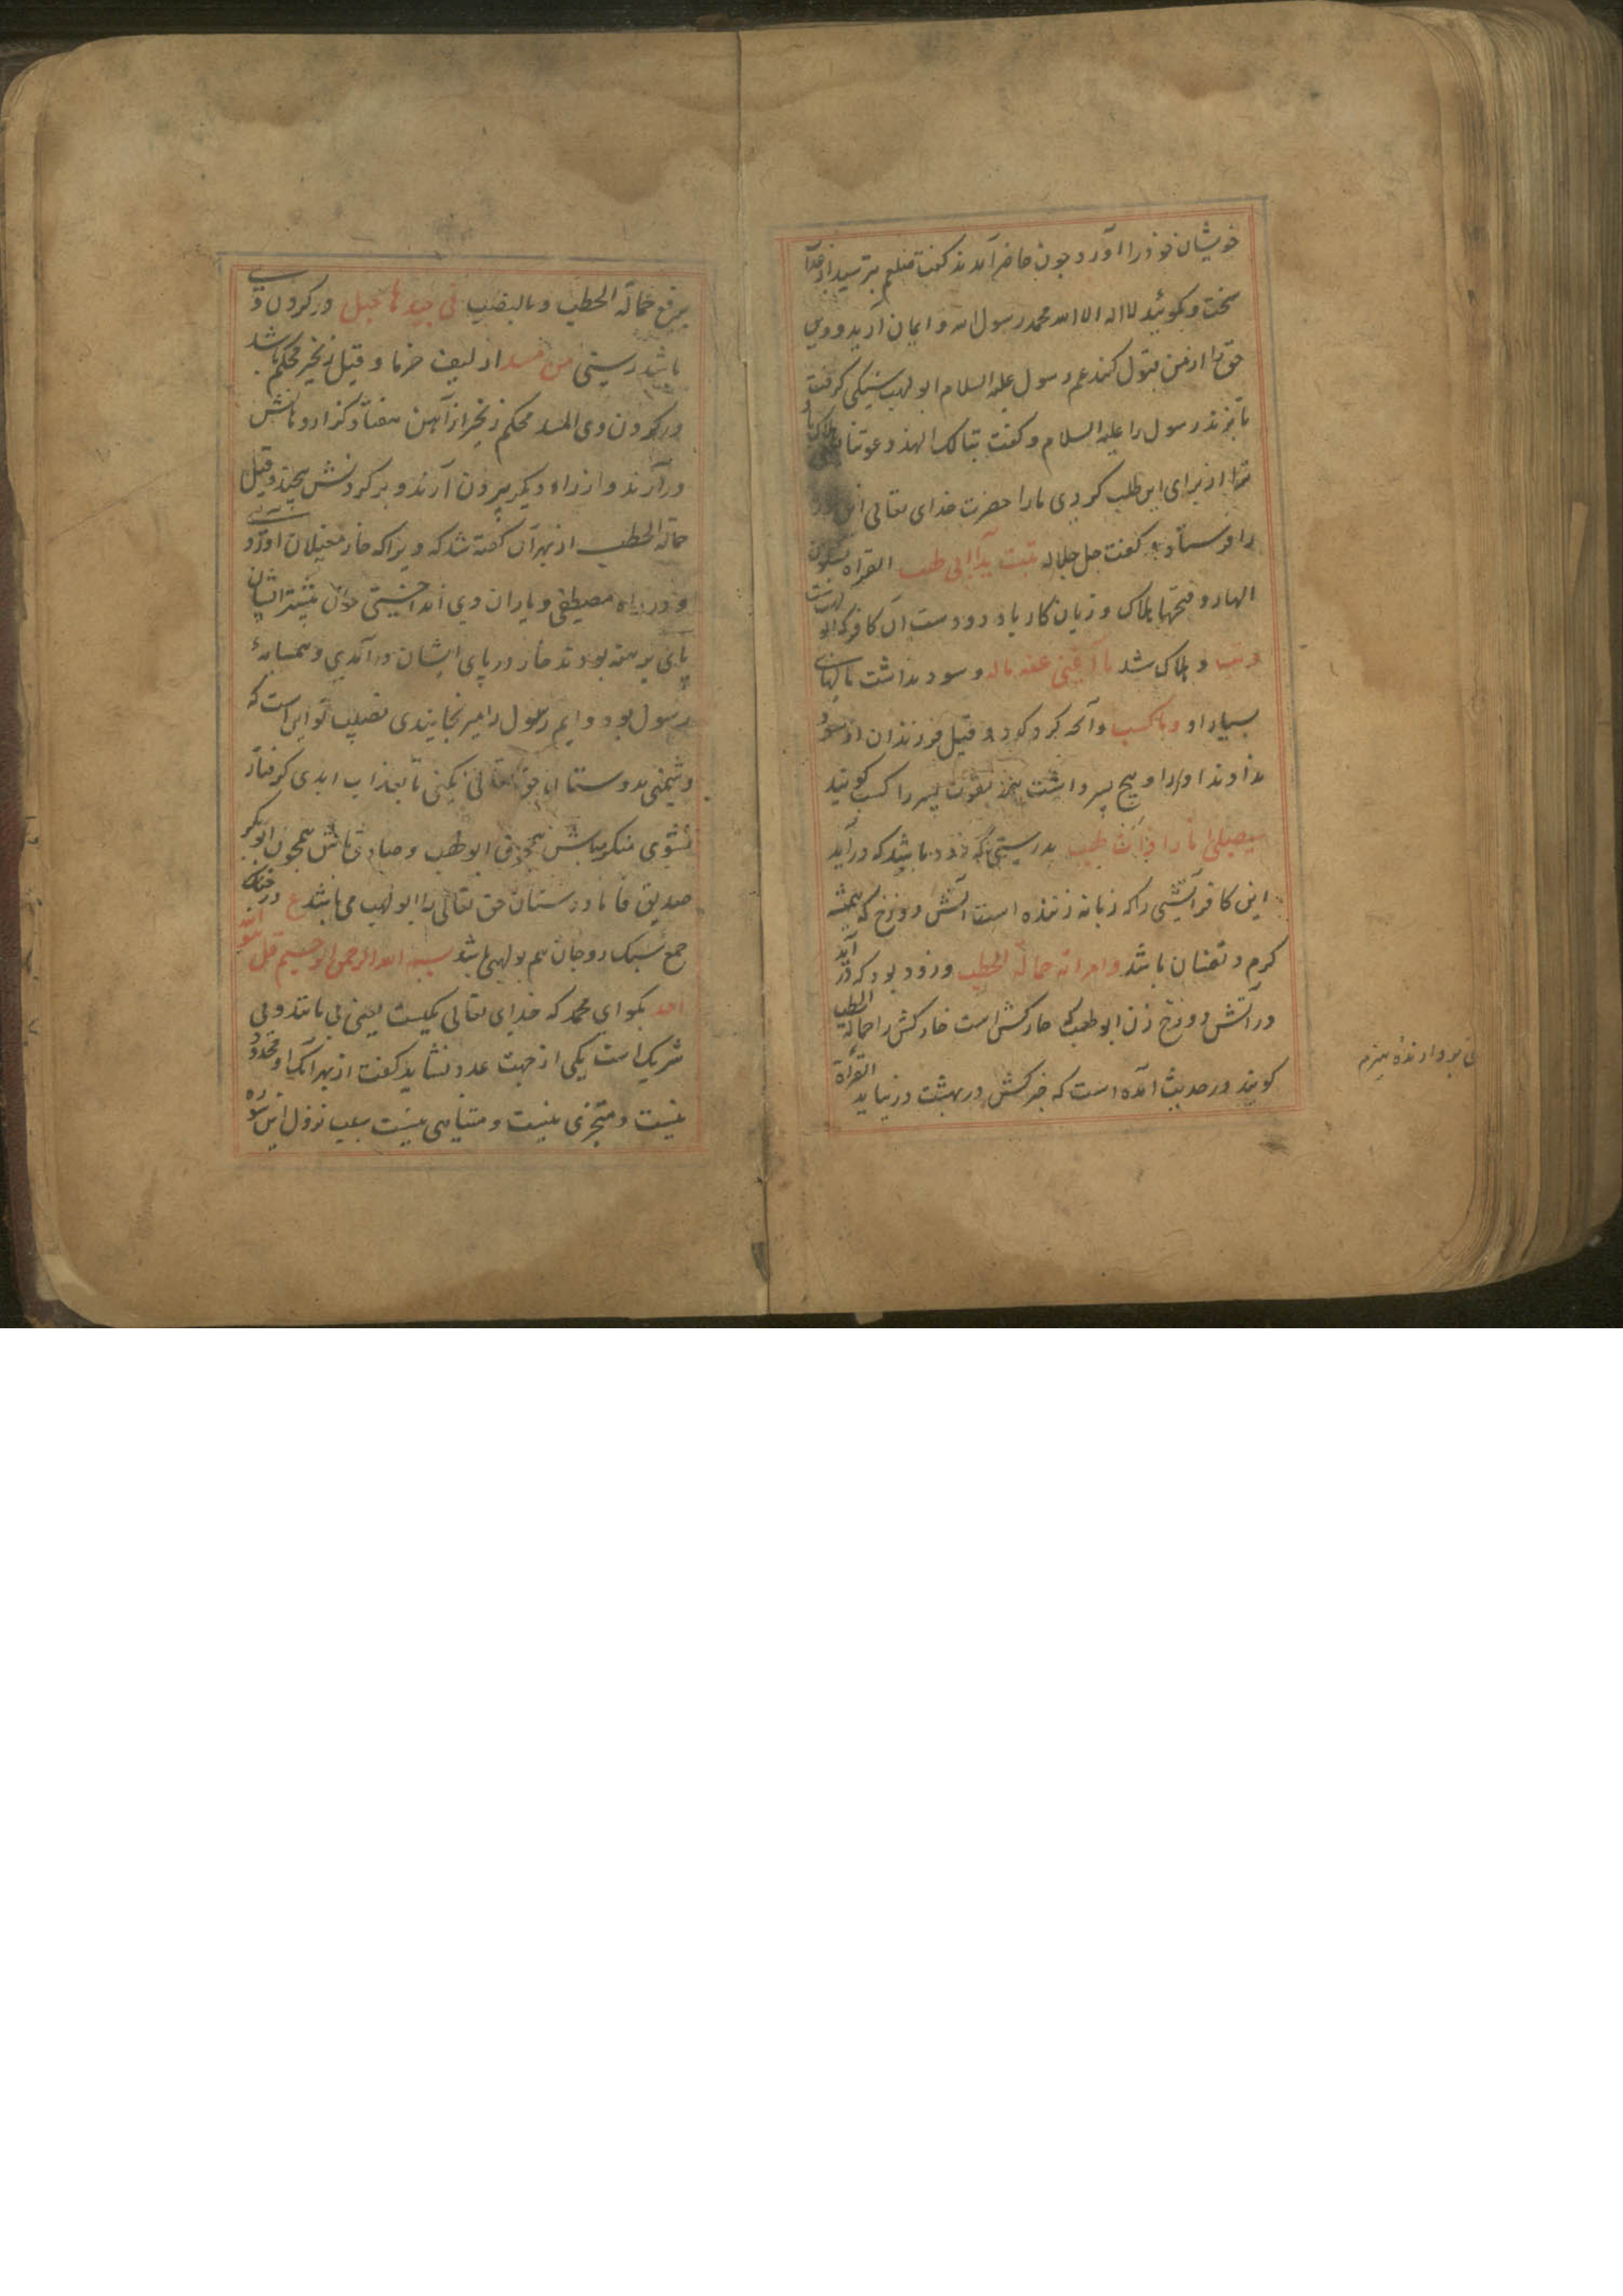 خویشان خود را آورد چون حاضر آمدند کفت بترسید از عذاب
سخت و بکوئید لا اله الا الله محمد رسول الله و ایمان آرید و دین
حق را از من قبول کنید عم رسول علیه السلام ابو لهب سنکی کرفت
تا بزند رسول را علیه السلام و کفت تبالک الهذا دعوتنا هلاک باد
ترا از برای این طلب کردی ما را حضرت خدای تعالی این سوره
را فرستاد و کفت جل جلاله تبت یدا ابی لهب القراه بسکون
الهاء و فتحها هلاک و زیان کار باد دو دست آن کافر که ابو لهب است
و تب و هلاک شد ما اغنی عنه ماله و سود نداشت مالهای
بسیار او و ما کسب و آنچه کرد کرد و قیل فرزندان او سود
نداوند او را و هیچ پسر داشت پسر را کسب کویند
سیصلی نارا ذات لهب بدرستی که زود باشد که درآید
این کافر آتشی را که زبانه زننده است آتش دوزخ که همیشه
کرم و تفسان باشد و امراته حمالة الحطب و زود بود که در آید
در آتش دوزخ زن ابو لهب که خارکش است خارکش را حمالة الحطب
کویند در حدیث آمده است که خبرکش در بهشت در نیاید القراة
یعنی بردارنده هیزم
برفع حمالة الحطب و بالنصب فی جیدها حبل در کردن وی
باشد رسنی من مسد از لیف خرما و قیل زنجیر محکم باشد
در کردن وی المسد محکم زنجیر از آهن هفتاد کز از دهانش
درآرند و از راه دیکر بیرون آرند و بر کردنش پیچند و قیل
حمالة الحطب از بهر آن کفته شد که ویرا که خار مغیلان آوردی
و در راه مصطفی و یاران وی انداختی چون بیشتر ایشان
پای برهنه بودند خار در پای ایشان درآمدی و همسایهٔ
رسول بود دایم رسول را میرنجانیدی نصیب تو این است که
دشمنی بدوستان حق تعالی نکنی تا بعذاب ابدی کرفتار
نشوی منکر مباش همچو ابو لهب و صادق باش همچون ابو بکر
صدیق فاما دوستان حق تعالی را ابو لهب می باشد ع در جنک
جمع سبک روحان هم بولهبی باشد بسم الله الرحمن الرحیم قل هو الله
احد بکو ای محمد که خدای تعالی یکیست یعنی بی مانند و بی
شریک است یکی از جهت عدد نشاید کفت از بهر آنک او محدود
نیست و متجزی نیست و متناهی نیست سبب نزول این سوره